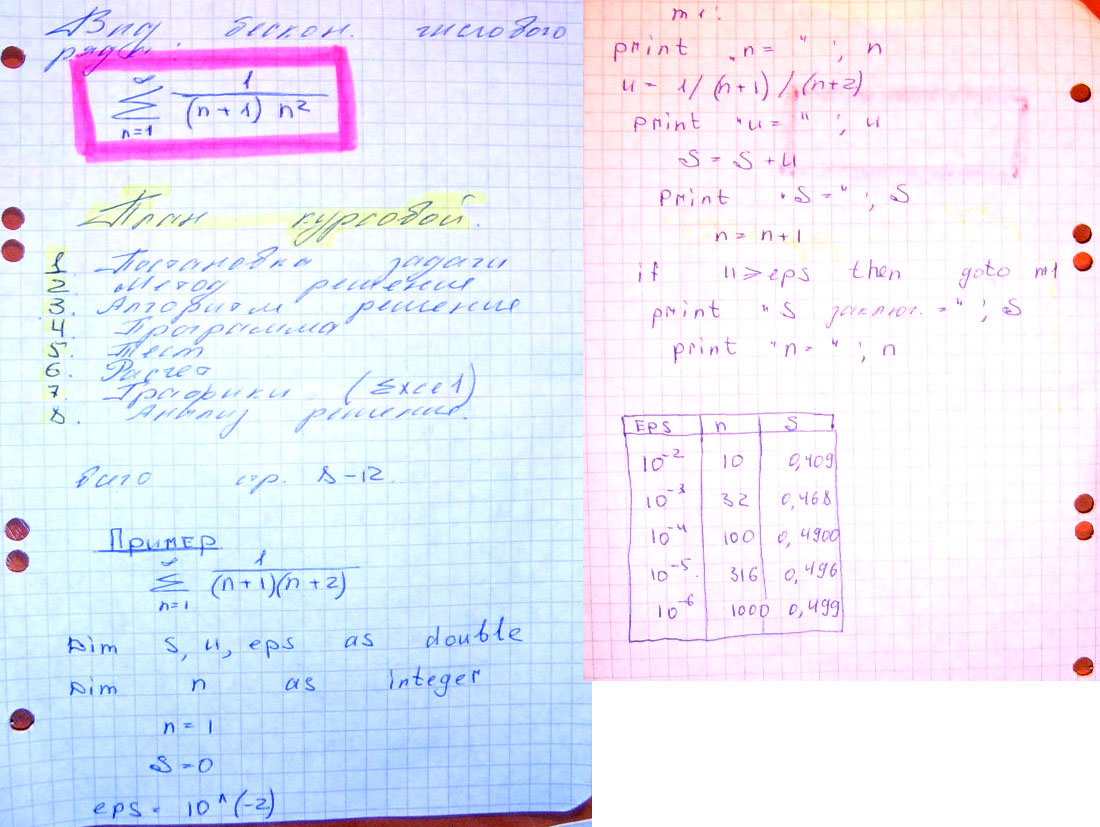 Вид бескон. числового
ряда:
∞
∑ 1 / (n+1) n²
n=1
План курсовой.
1. Постановка задачи
2. Метод решения
3. Алгоритм решения
4. Программа
5. Тест
6. Расчет
7. Графики (Excel)
8. Анализ решение.
Всего стр. 8-12.
Пример
∞
∑ 1 / (n+1)(n+2)
n=1
Dim s, u, eps as double
Dim n as integer
n = 1
S = 0
eps = 10^(-2)
m1:
print "n = " ; n
u = 1/(n+1)/(n+2)
print "u = " ; u
S = S + u
print "S = " ; S
n = n+1
if u ≥ eps then goto m1
print "S заключ. = " ; S
print "n = " ; n
Eps n S
10⁻² 10 0,409
10⁻³ 32 0,468
10⁻⁴ 100 0,4900
10⁻⁵. 316 0,496
10⁻⁶ 1000 0,499